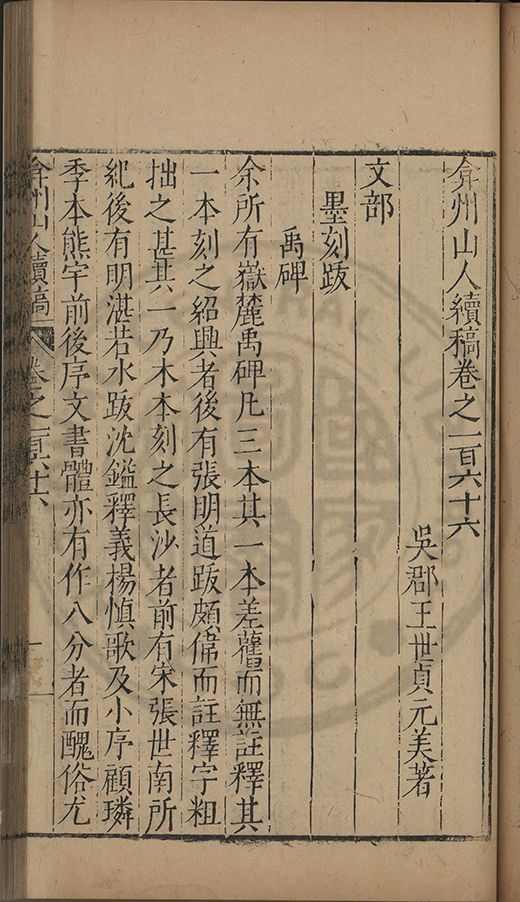 弇州山人續稿卷之一百六十六
吳郡王世貞元美著
文部
墨刻跋
禹碑
余所有嶽麓禹碑凡三本其一本差舊而無註釋其
一本刻之紹興者後有張明道跋頗備而註釋字粗
拙之甚其一乃木本刻之長沙者前有宋張世南所
紀後有明湛若水跋沈鑑釋義楊慎歌及小序顧璘
季本熊宇前後序文書體亦有作八分者而醜俗尤
弇州山人續稿 卷之一百六十六 一